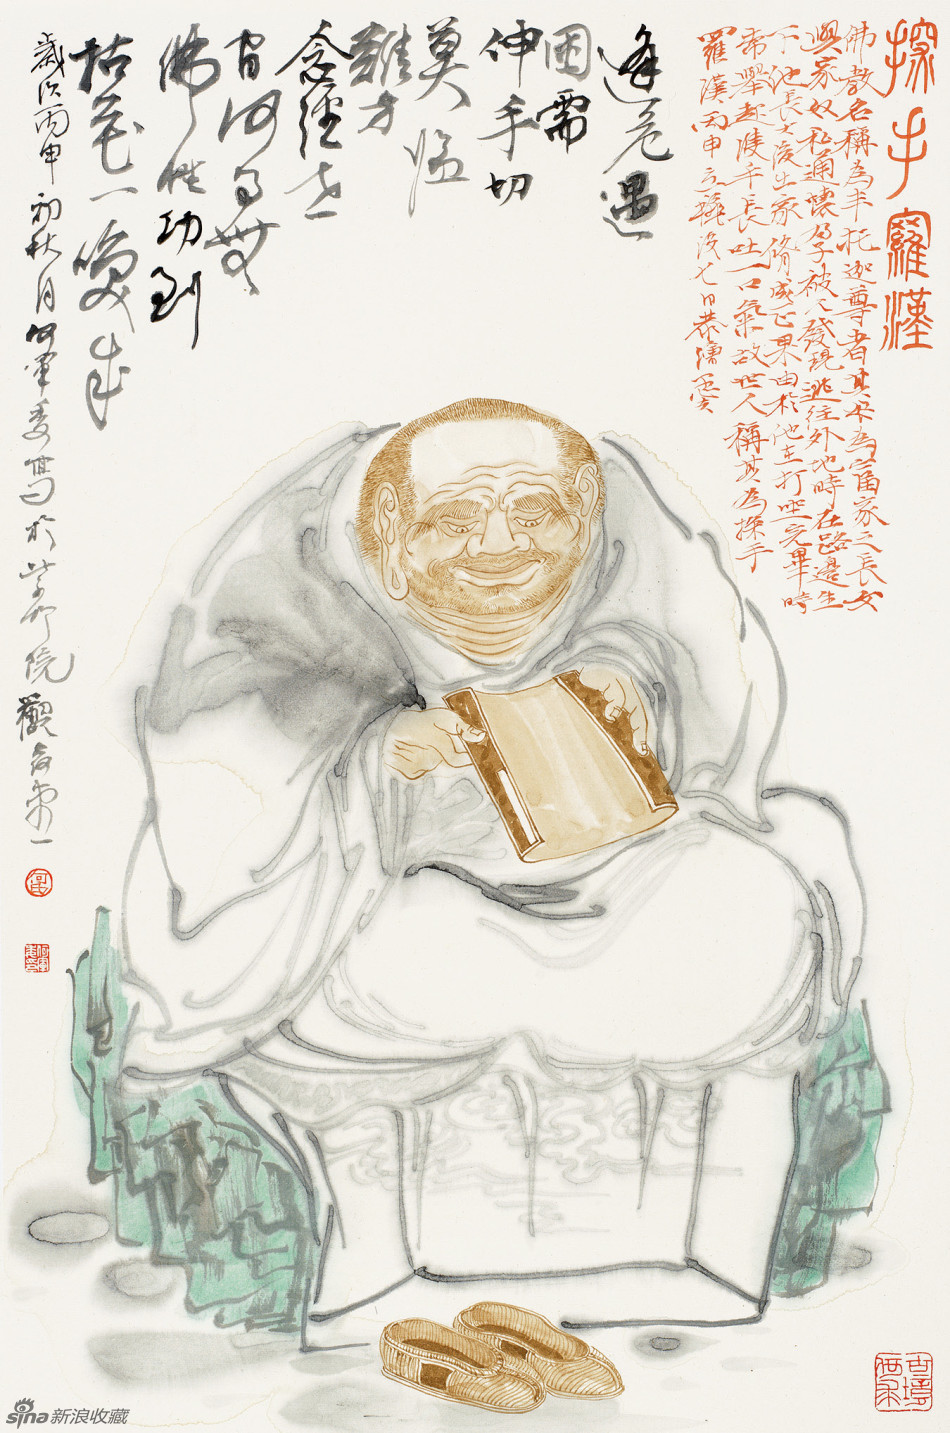 探手羅漢
佛教名稱為半托迦尊者其母為富家之長女
與家奴私通懷孕被人發現逃往外地時在路邊生
下他長大後出家脩成正果由於他在打坐完畢時
常舉起雙手長吐一口氣故世人稱其為探手
羅漢丙申立秋後七日恭繪
逢危遇
困需
伸手切
莫臨
難才
念經世
間何有無
佛性功到
拈花一笑成
歲次丙申初秋月何軍委寫於
sina新浪收藏